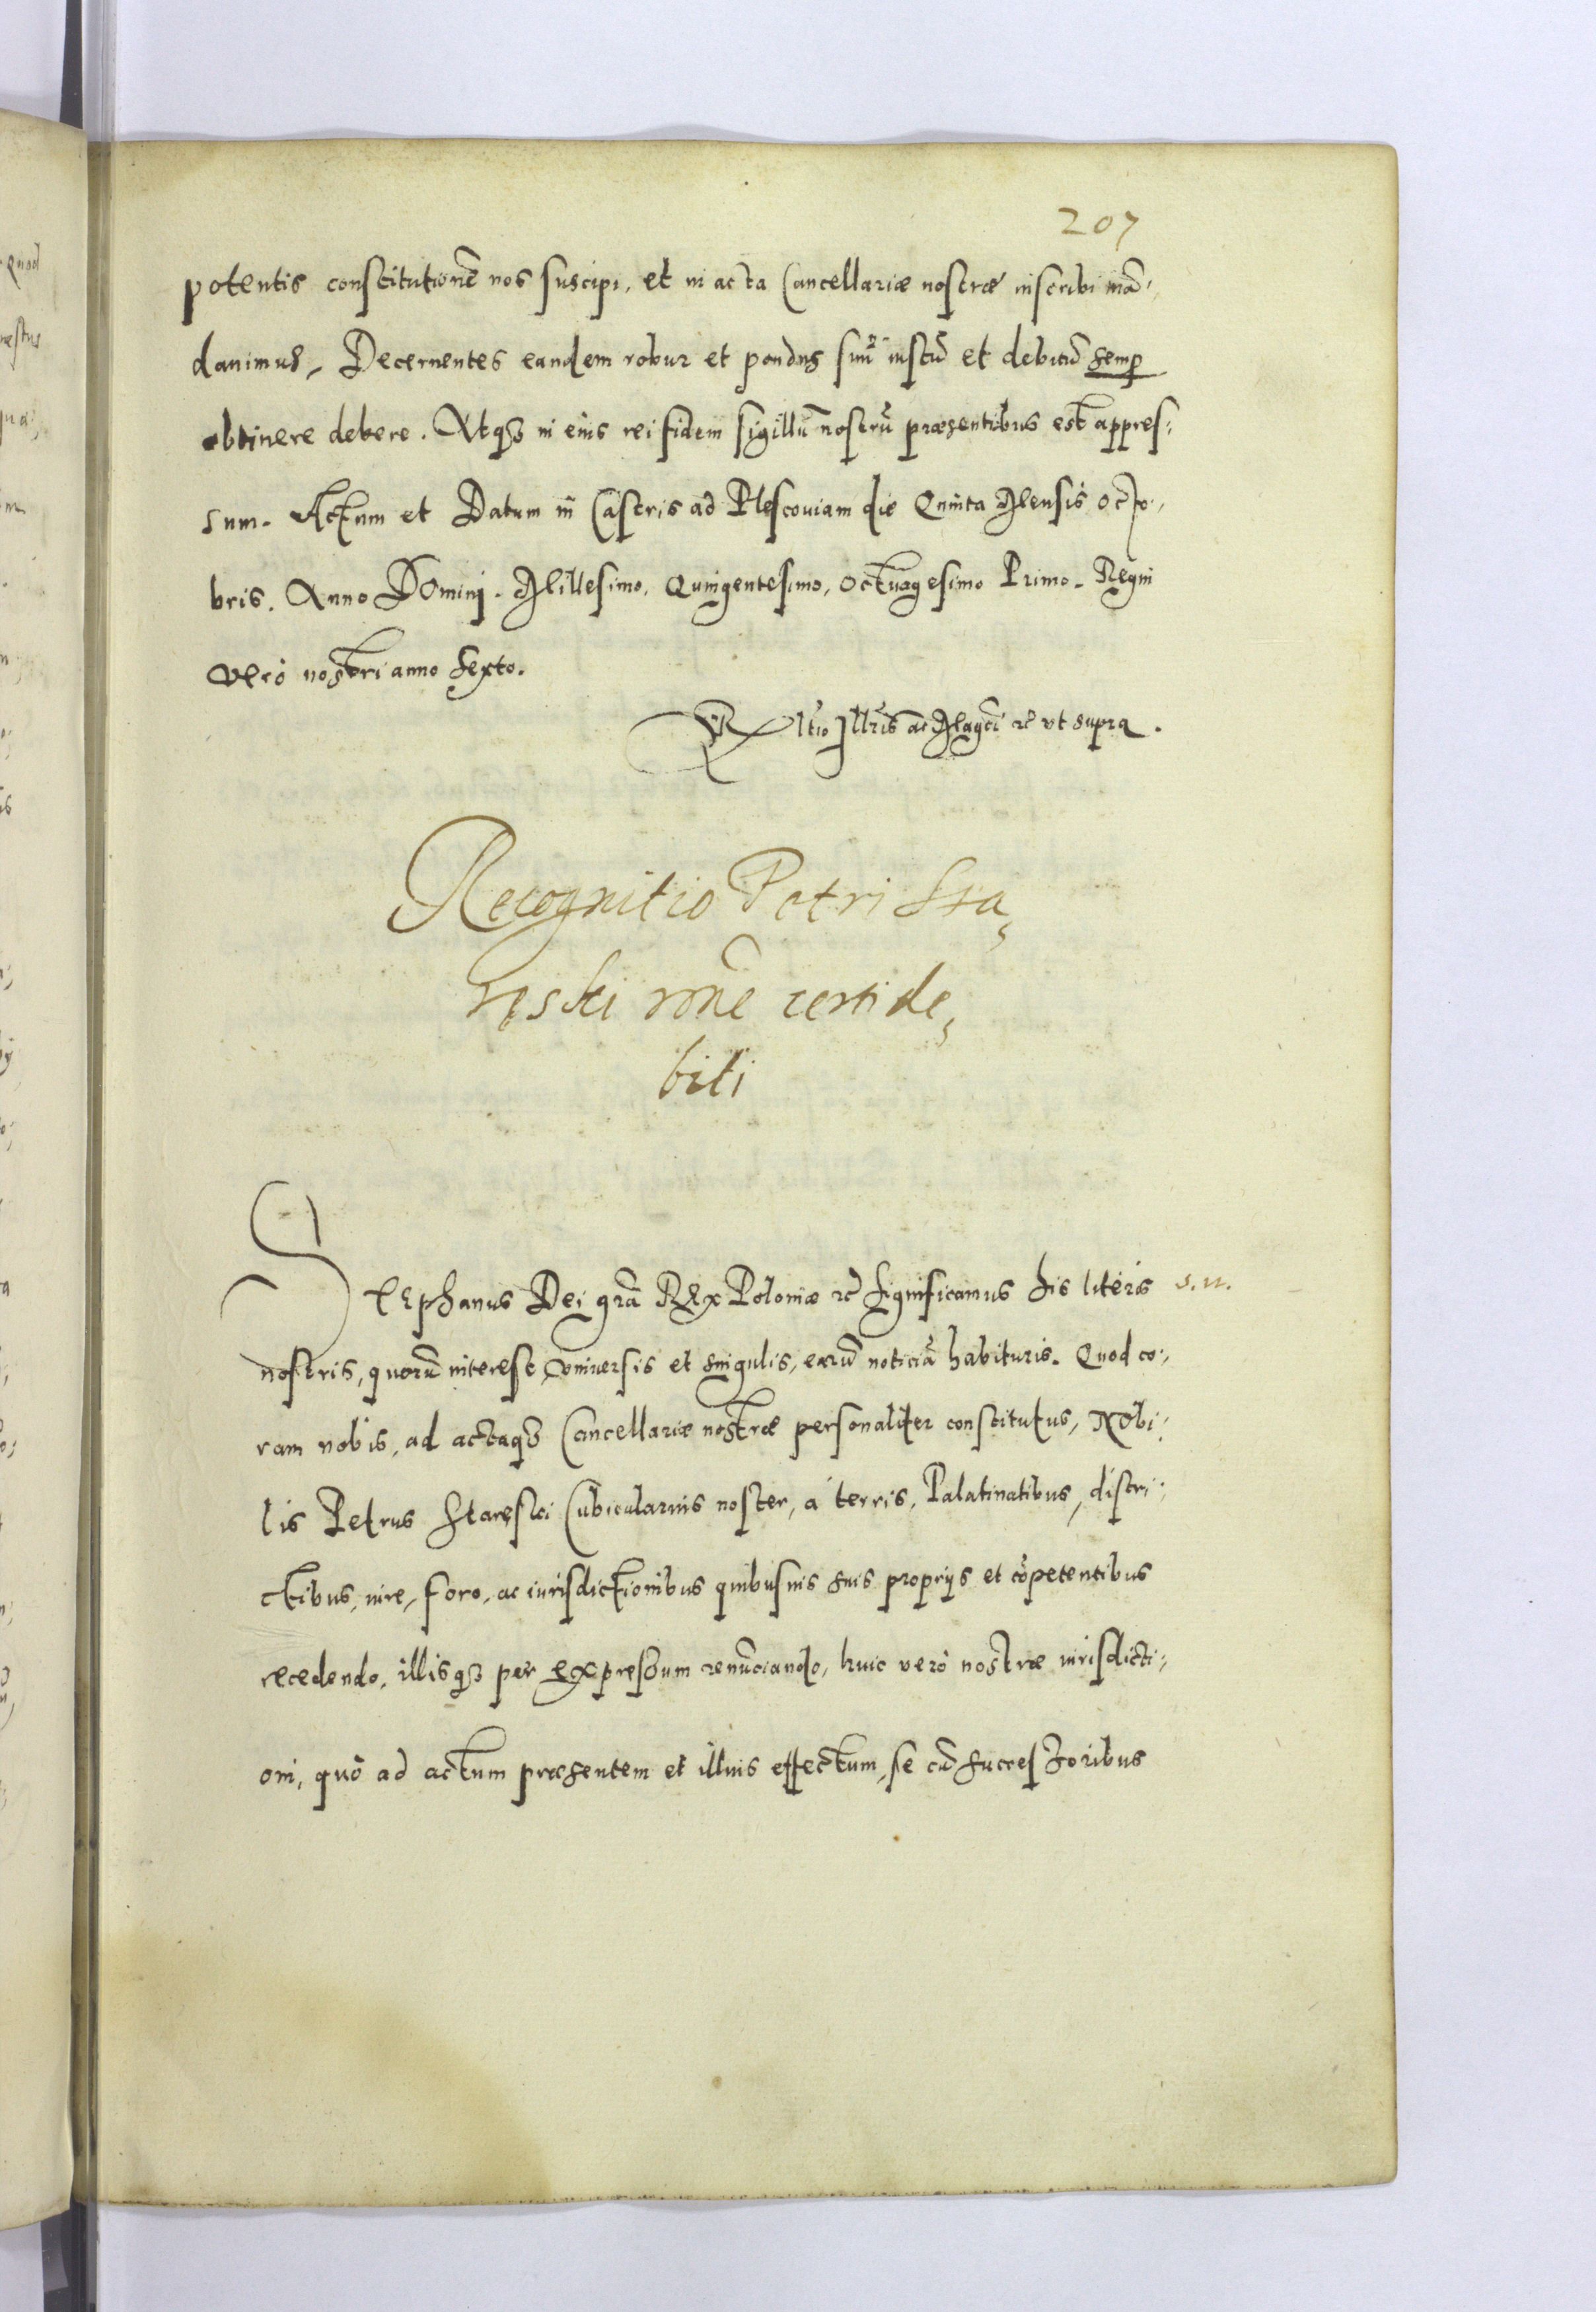 207
potentis constitutionẽ nos suscipi, et in acta Cancellariæ nostræ inscribi mã,
danimus, Decernentes eandem robur et pondus suũ iustũ et debitũ semp
obtinere debere. Atq3 in eius rei fidem sigillũ nostrũ præsentibus est appres:
sum. Actum et Datum in Castris ad Plescouiam die Quinta Mensis octo,
bris. Anno DOmini. Millesimo, Quingentesimo, octuagesimo Primo. Regni
vero nostri anno sexto.
Rltio Illris ac Magci rc vt supra.
Recognitio Petri Sta,
ręski rõne certi de,
biti
STEphanus Dei grã REx Poloniæ rc Significamus his literis s. n.
nostris, quorũ interest, vniuersis et singulis, earũ noticiã habituris. Quod co,
ram nobis, ad actaq3 Cancellariæ nostræ personaliter constitutus, NObi,
lis Petrus Staręski Cubicularius noster, à terris, Palatinatibus, distri,
ctibus, iure, foro, ac iurisdictionibus quibusuis suis proprijs et cõpetentibus
recedendo, illisq3 per expressum renũciando, huic verò nostræ iurisdicti,
oni, quò ad actum præsentem et illius effectum, se cũ successoribus